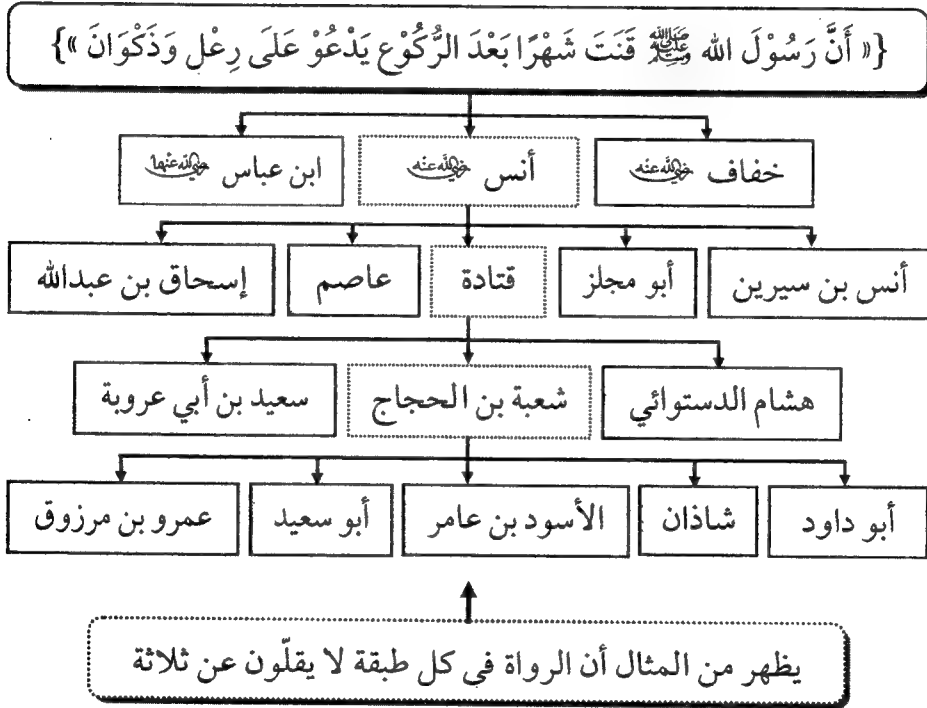 {« أَنَّ رَسُوْلَ الله ﷺ قَنَتَ شَهْرًا بَعْدَ الرُّكُوْع يَدْعُوْ عَلَى رِعْل وَذَكْوَانَ »}
خفاف رضي الله عنه أنس رضي الله عنه ابن عباس رضي الله عنهما
أنس بن سيرين أبو مجلز قتادة عاصم إسحاق بن عبدالله
هشام الدستوائي شعبة بن الحجاج سعيد بن أبي عروبة
أبو داود شاذان الأسود بن عامر أبو سعيد عمرو بن مرزوق
يظهر من المثال أن الرواة في كل طبقة لا يقلّون عن ثلاثة